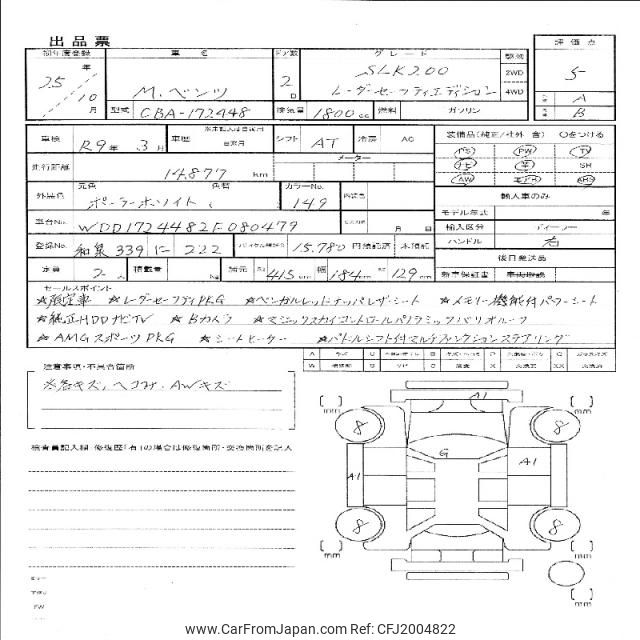 出品票
初年度登録 車名 ドア数 グレード 駆動 評価点
25年 10月 M.ベンツ 2D SLK200 2WD 5
レーダーセーフティエディション 4WD A
型式 CBA-172448 排気量 1800cc 燃料 ガソリン B
車検 R9年 3月 車歴 シフト AT 冷房 AC 装備品(純正/社外 含) ○をつける
走行距離 14,877km メーター
PW TV SR AW
外装色 元色 色替 カラーNo. 149 内装色 輸入車のみ
ポーラーホワイト モデル年式 年
車台No. WDD1724482F080479 月 日 輸入区分 ディーラー
登録No. 和泉 339 に 222 リサイクル預託金 15,780円 預託済 未預託 ハンドル 右
後日発送品
定員 2人 積載量 Kg 諸元 長さ 415cm 幅 184cm 高さ 129cm 新車保証書 車両取説
セールスポイント
☆限定車 ☆レーダーセーフティPKG ☆ベンガルレッドナッパレザーシート ☆メモリー機能付パワーシート
☆純正HDDナビTV ☆Bカメラ ☆マジックスカイコントロールパノラミックバリオルーフ
☆AMGスポーツPKG ☆シートヒーター ☆パドルシフト付マルチファンクションステアリング
注意事項・不具合箇所
※各キズ、ヘコみ、AWキズ
検査員記入欄 修復歴「有」の場合は修復箇所・交換箇所を記入
mm mm
8 8
G
A1 A1
8 8
mm mm
mm
Copyright © CarFromJapan.com Ref: CFJ2004822